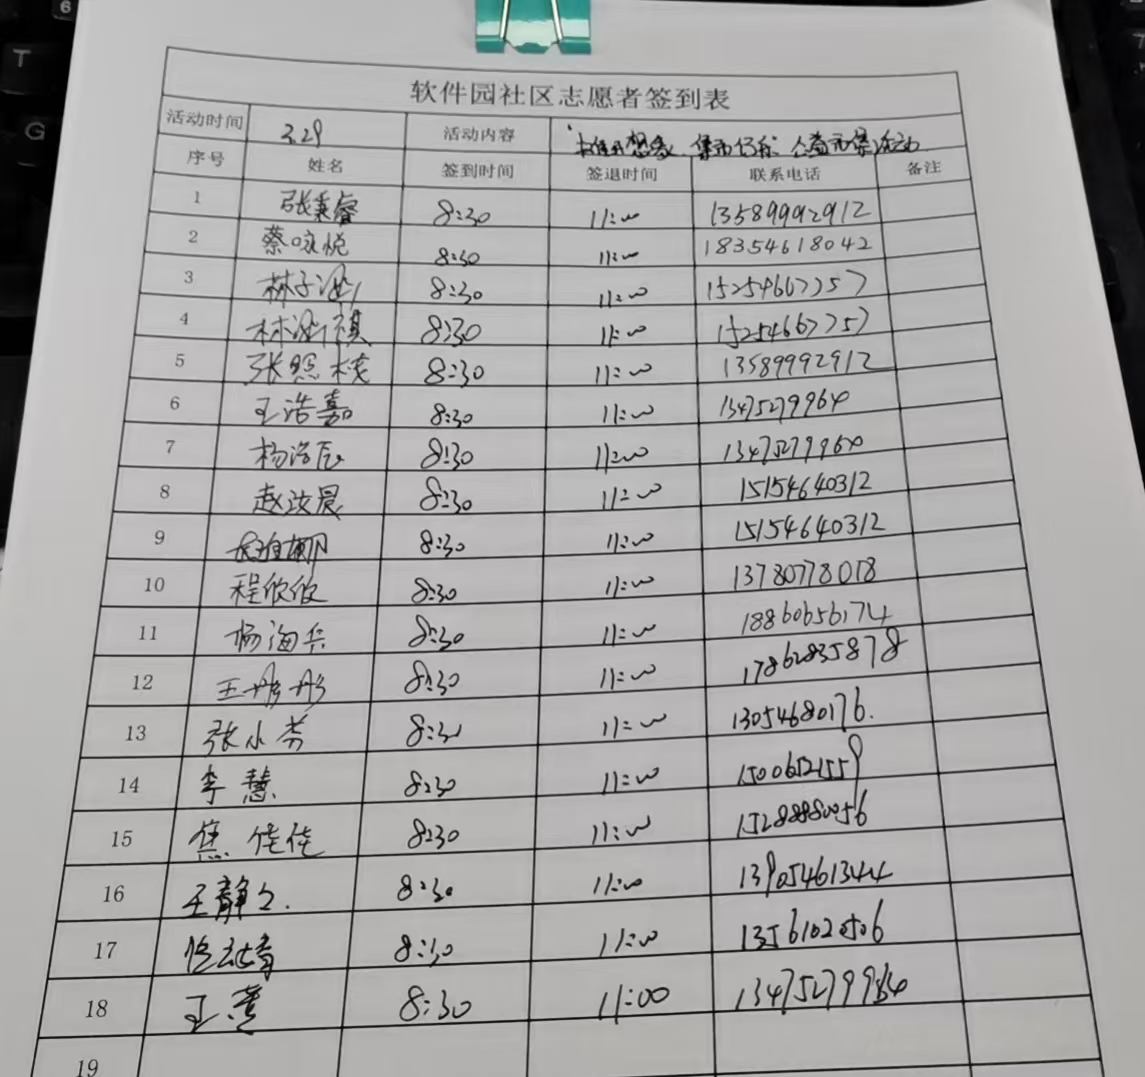 软件园社区志愿者签到表
活动时间 3.29 活动内容
序号 姓名 签到时间 签退时间 联系电话 备注
1 张秉睿 8:30 11:00 13589992912
2 蔡咏悦 8:30 11:00 18354618042
3 林子 8:30 11:00 15254667757
4 林 祺 8:30 11:00 15254667757
5 张照栈 8:30 11:00 13589992912
6 王浩嘉 8:30 11:00 13475279964
7 杨浩辰 8:30 11:00 13475279964
8 赵汝晨 8:30 11:00 15154640312
9 8:30 11:00 15154640312
10 程欣攸 8:30 11:00 13780778018
11 杨海兵 8:30 11:00 18860656174
12 王彤彤 8:30 11:00 17862835878
13 张小芳 8:30 11:00 13054680176.
14 李慧 8:30 11:00 15006521559
15 焦佳佳 8:30 11:00 15288880056
16 王静 8:30 11:00 13905461344
17 8:30 11:00
18 王 8:30 11:00 13475279964
19